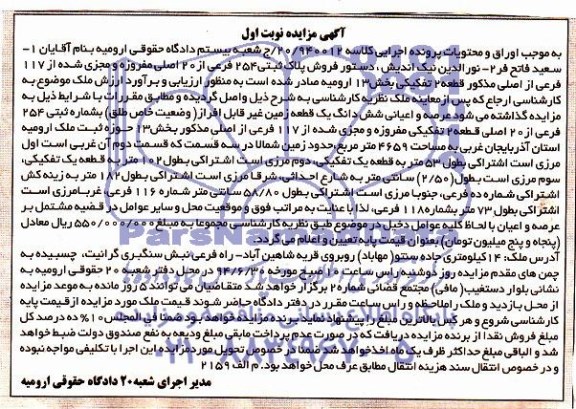 آگهی مزایده نوبت اول
به موجب اوراق و محتویات پرونده اجرایی کلاسه ۲۰/۹۴۰۰۱۲/ج شعبه بیستم دادگاه حقوقی ارومیه بنام آقایان ۱-
سعید فاتح فر ۲- نورالدین نیک اندیش، دستور فروش پلاک ثبتی ۲۵۴ فرعی از ۲۰ اصلی مفروزه و مجزی شده از ۱۱۷
فرعی از اصلی مذکور قطعه ۲ تفکیکی بخش ۱۳ ارومیه صادر شده است به منظور ارزیابی و برآورد ارزش ملک موضوع به
کارشناسی ارجاع که پس از معاینه ملک نظریه کارشناسی به شرح ذیل واصل گردیده و مطابق مقررات با شرایط ذیل به
مزایده گذاشته می شود عرصه و اعیانی شش دانگ یک قطعه زمین غیر قابل افراز( وضعیت خاص طلق) بشماره ثبتی ۲۵۴
فرعی از ۲۰ اصلی قطعه ۲ تفکیکی مفروزه و مجزی شده از ۱۱۷ فرعی از اصلی مذکور بخش ۱۳ حوزه ثبت ملک ارومیه
استان آذربایجان غربی به مساحت ۴۶۵۹ متر مربع، حدود زمین شمالا در سه قسمت که قسمت دوم آن غربی است اول
مرزی است اشتراکی بطول ۵۳ متر به قطعه یک تفکیکی، دوم مرزی است اشتراکی بطول ۱۰۲ متر به قطعه یک تفکیکی،
سوم مرزی است بطول (۲/۵۰) سانتی متر به شارع احداثی، شرقا مرزی است اشتراکی بطول ۱۸۲ متر به زینه کش
اشتراکی شماره ده فرعی، جنوبا مرزی است اشتراکی بطول ۵۸/۸۰ سانتی متر شماره ۱۱۶ فرعی غربا مرزی است
اشتراکی بطول ۷۳ متر بشماره ۱۱۸ فرعی، لذا با عنایت به مراتب فوق و موقعیت محل و سایر عوامل در قضیه مشتمل بر
عرصه و اعیان با لحاظ کلیه عوامل دخیل در موضوع طبق نظریه کارشناسی مجموعا به مبلغ ۵۵۰/۰۰۰/۰۰۰ ریال معادل
(پنجاه و پنج میلیون تومان) بعنوان قیمت پایه تعیین و اعلام می گردد.
آدرس ملک: ۱۴ کیلومتری جاده سنتو (مهاباد) روبروی قریه شاهین آباد- راه فرعی نبش سنگبری گرانیت، چسبیده به
چمن های مقدم مزایده روز دوشنبه راس ساعت ۱۰ صبح مورخه ۹۴/۶/۲۰ در محل دفتر شعبه ۲۰ حقوقی ارومیه به
نشانی بلوار دستغیب (مافی) مجتمع قضائی شماره ۲ برگزار خواهد شد متقاضیان می توانند ۵ روز مانده به موعد مزایده
از محل بازدید و ملک را ملاحظه و راس ساعت مقرر در دفتر دادگاه حاضر شوند قیمت ملک مورد مزایده از قیمت پایه
کارشناسی شروع و هر کس بالاترین مبلغ را پیشنهاد نماید برنده مزایده خواهد بود ضمنا فی المجلس ۱۰٪ ده درصد کل
مبلغ فروش نقدا از برنده مزایده دریافت که در صورت عدم پرداخت مابقی مبلغ ودیعه به نفع صندوق دولت ضبط خواهد
شد و الباقی مبلغ حداکثر ظرف یک ماه اخذ خواهد شد ضمنا در خصوص تحویل مورد مزایده این اجرا با تکلیفی مواجه نبوده
و در خصوص انتقال سند هزینه انتقال مطابق عرف محل خواهد بود. م الف ۲۱۵۹
مدیر اجرای شعبه ۲۰ دادگاه حقوقی ارومیه